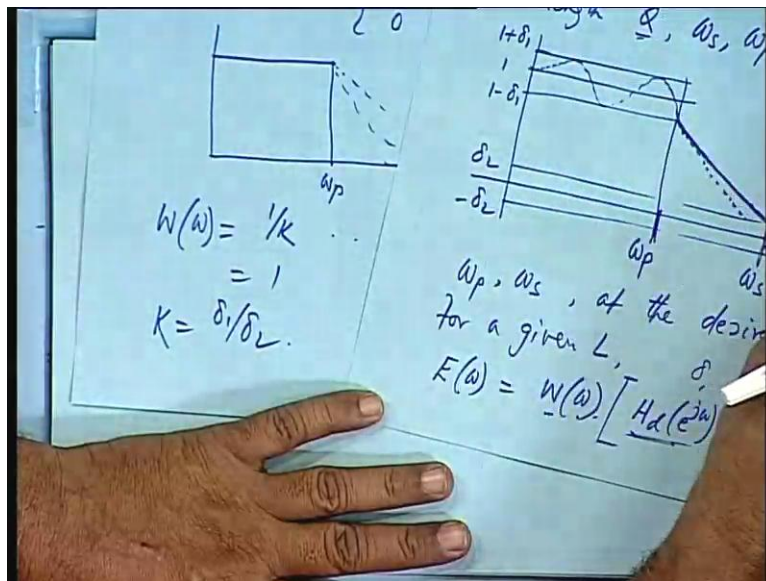 { 0
ωp
W(ω) = 1/K . .
= 1
K = δ1/δ2.
length Q, ωs, ωp
1+δ1
1
1-δ1
δ2
-δ2
ωp
ωs
ωp, ωs, at the desire
for a given L,
δ
E(ω) = W(ω). [ Hd(e^jω)